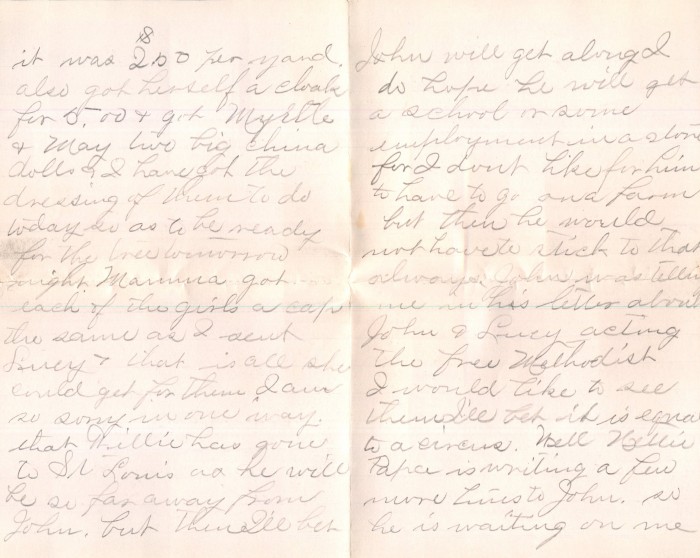 it was 2.00 per yard.
18
also got herself a cloak
for 5.00 & got Myrtle
& May two big china
dolls & I have got the
dressing of them to do
today so as to be ready
for the tree tomorrow
night. Mamma got
each of the girls a cap
the same as I sent
Lucy & that is all she
could get for them I am
so sorry in one way
that Willie has gone
to St Louis as he will
be so far away from
John. but then I'll bet
John will get along I
do hope he will get
a school or some
employment in a store
for I dont like for him
to have to go on a farm
but then he would
not have to stick to that
always. John was tellin
me in his letter about
John & Lucy acting
the free Methodist
I would like to see
them I'll bet it is equa
to a circus. Well Nellie
Papa is writing a few
more lines to John. so
he is waiting on me